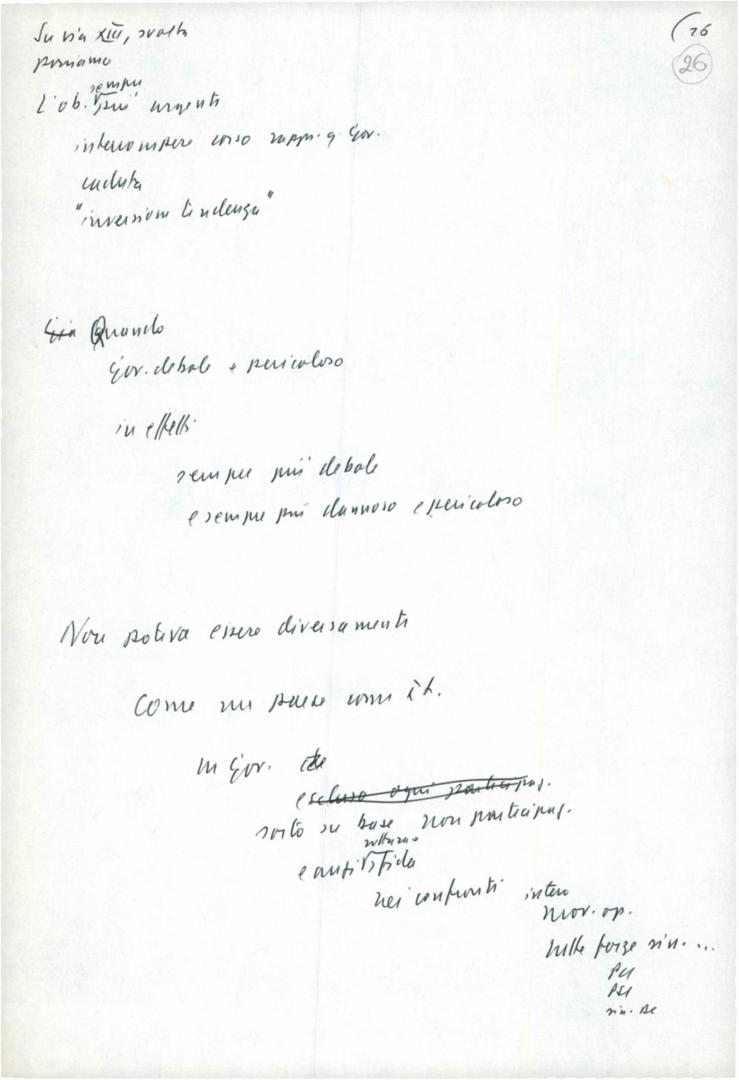 Su via XIII, svolta
(26
26
poniamo
sempre
L'ob. più urgente
interrompere corso rappr. q. Gov.
caduta
"inversione tendenza"
Quando
Gov. debole e pericoloso
in effetti
sempre più debole
e sempre più dannoso e pericoloso
Non poteva essere diversamente
Come un paese come it.
un Gov. che
escluso ogni participaz.
sorto su base non participaz.
rottura e
e anzi sfida
nei confronti intero
mov. op.
tutte forze sin. ...
PCI
PSI
sin. DC